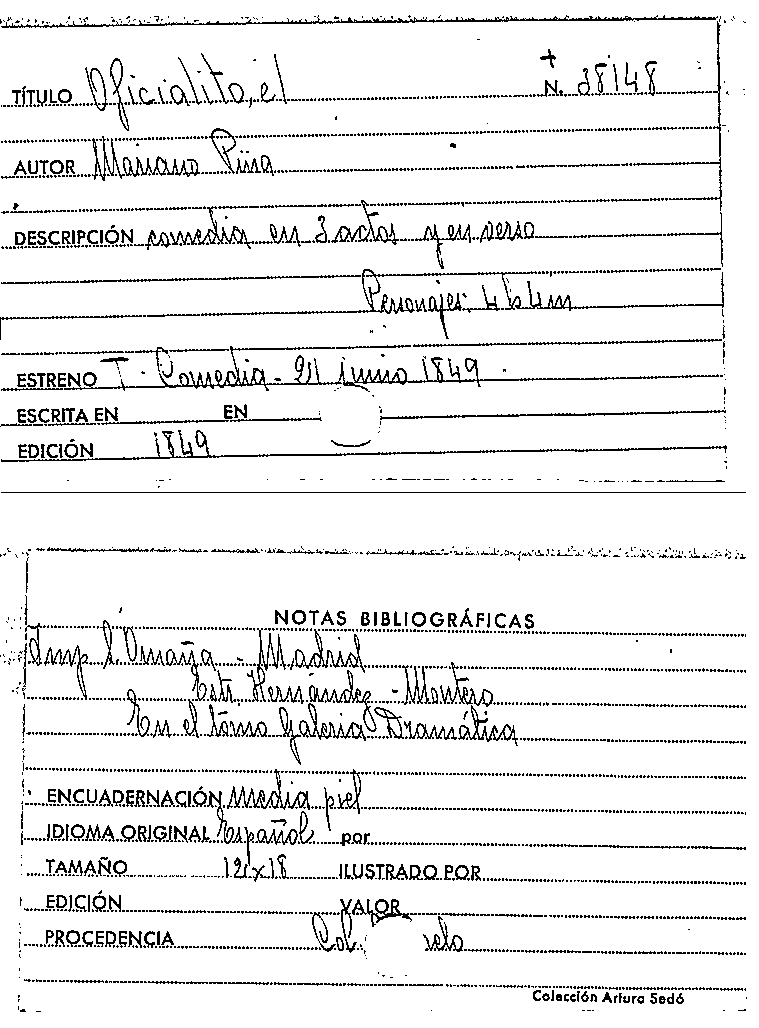 TÍTULO Oficialito, el
+
N. 38148
AUTOR Mariano Pina
DESCRIPCIÓN comedia en 3 actos y en verso
Personajes: 4 h 4 m
ESTRENO T. Comedia - 21 junio 1849
ESCRITA EN EN
EDICIÓN 1849
NOTAS BIBLIOGRÁFICAS
Imp. S. Omaña - Madrid
Estr. Hernández - Montero
En el tomo Galeria Dramática
ENCUADERNACIÓN Media piel
IDIOMA ORIGINAL Español por
TAMAÑO 12x18 ILUSTRADO POR
EDICIÓN VALOR
PROCEDENCIA Col.
Colección Arturo Sedó